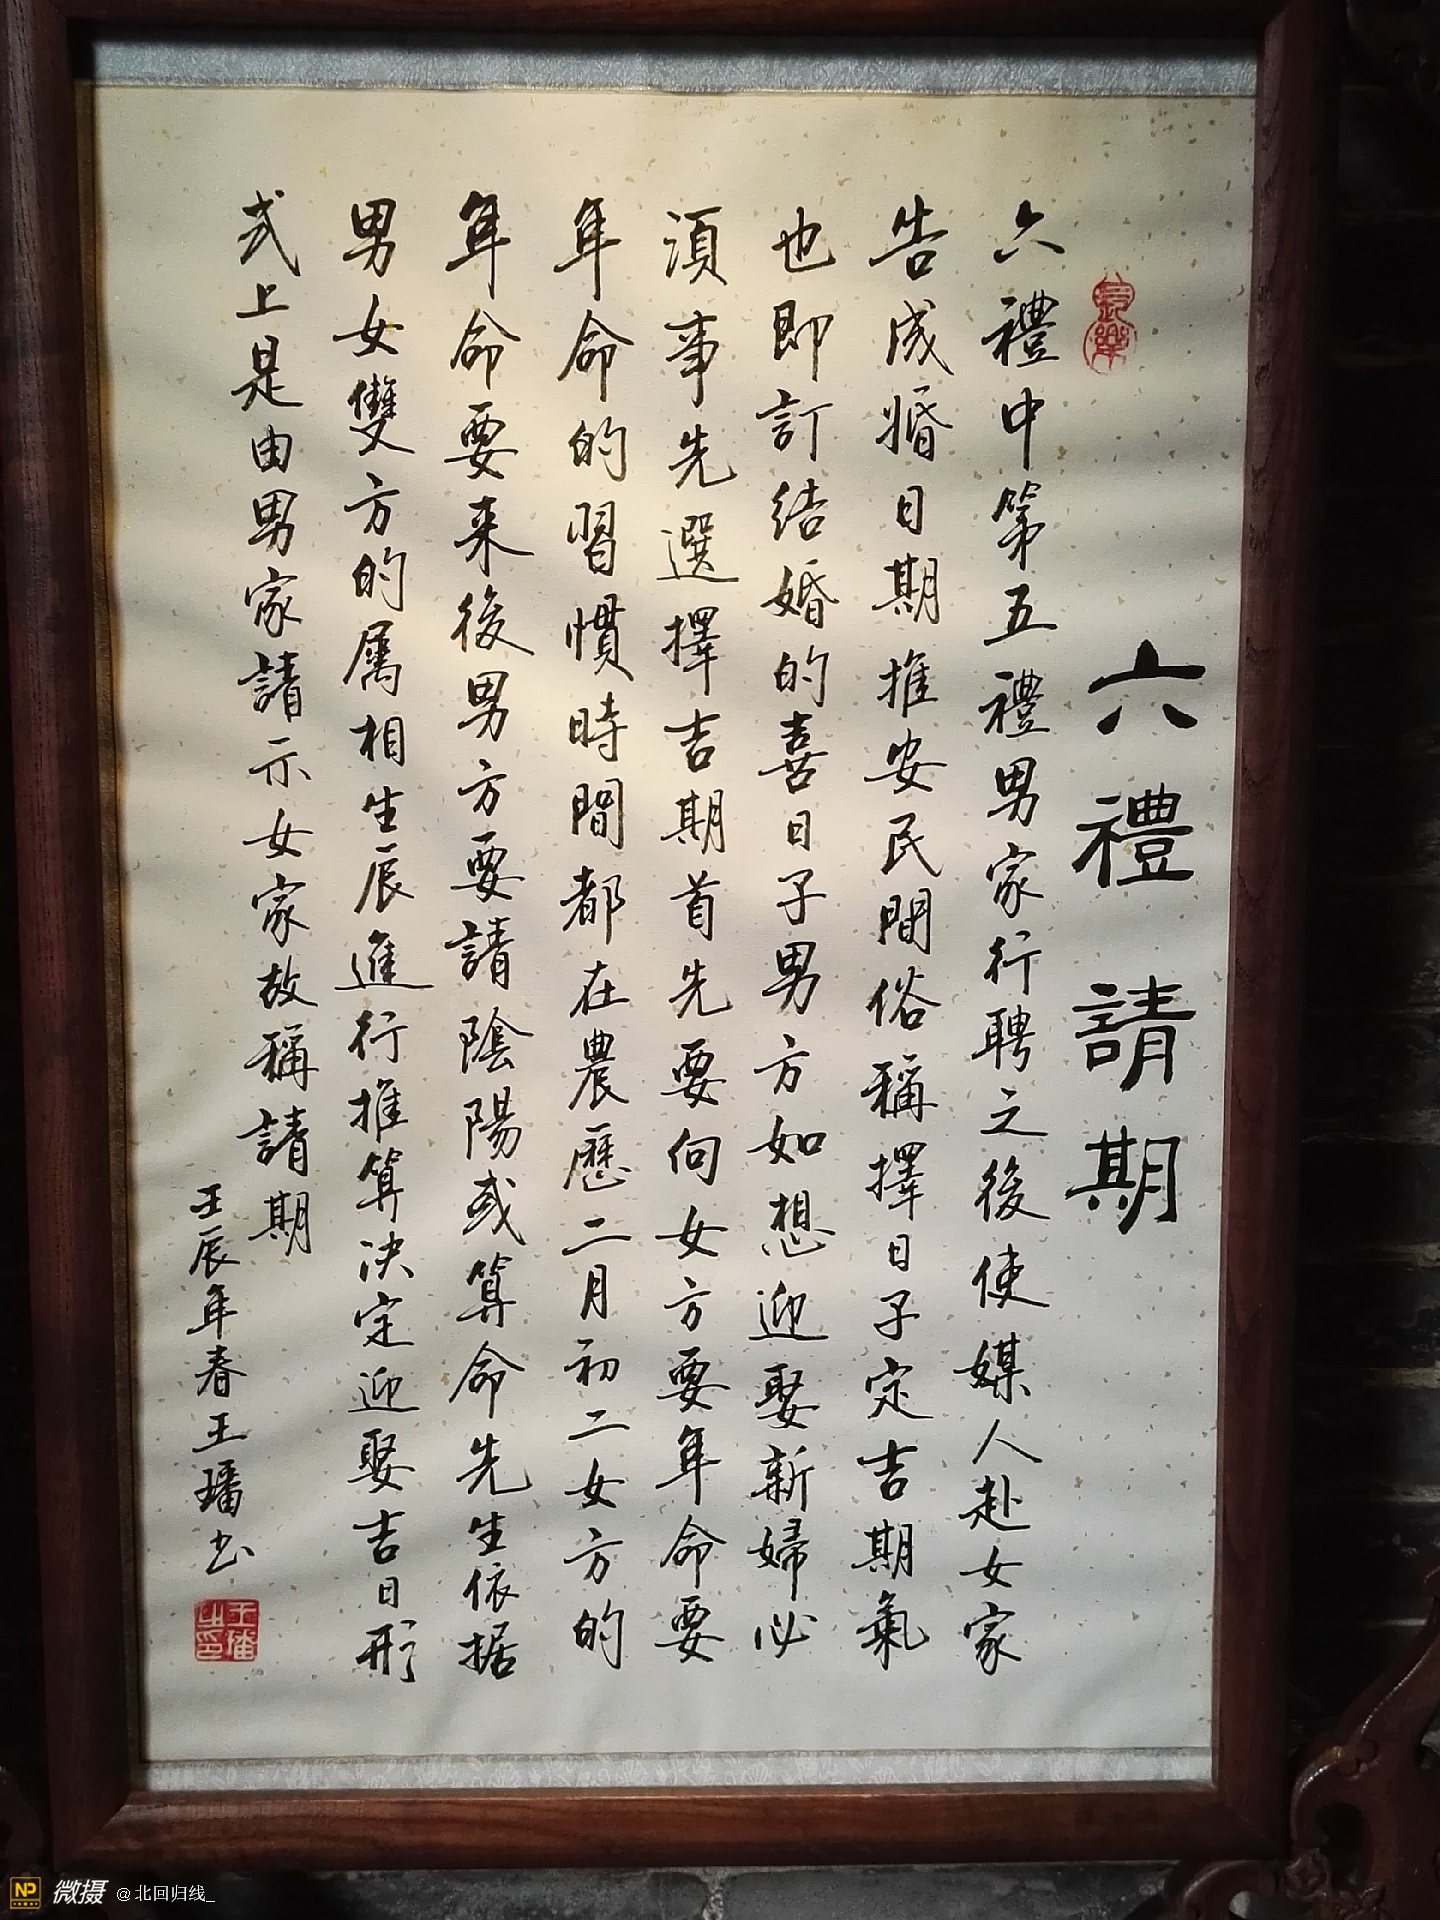 六禮請期
六禮中第五禮男家行聘之後使媒人赴女家
告成婚日期推安民間俗稱擇日子定吉期氣
也即訂结婚的喜日子男方如想迎娶新婦必
須事先選擇吉期首先要向女方要年命要
年命的習慣時間都在農歷二月初二女方的
年命要来後男方要請陰陽或算命先生依据
男女雙方的屬相生辰進行推算决定迎娶吉日形
式上是由男家請示女家故稱請期
壬辰年春王璠书
NP 微摄 @北回归线_